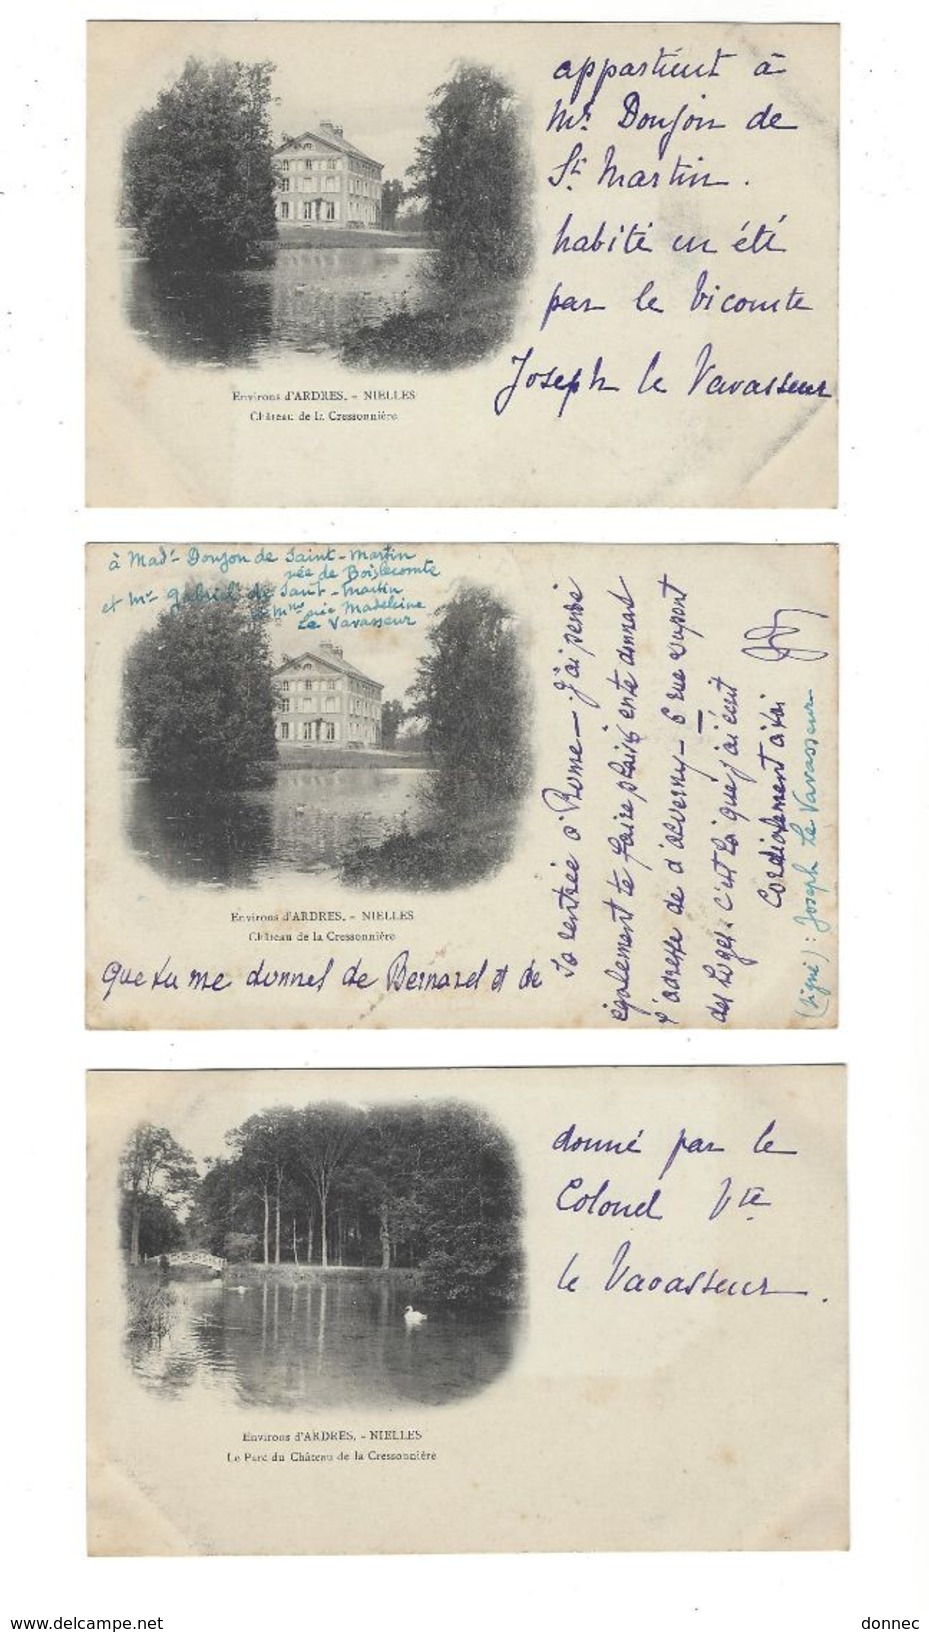 appartient à
Mr. Doujon de
St. Martin.
habité en été
par le Vicomte
Joseph le Vavasseur
Environs d'ARDRES. - NIELLES
Château de la Cressonnière
à Made Doujon de Saint-Martin
née de Boislecomte
et Mr Gabriel de Saint-Martin
et Mme née Madeleine
Le Vavasseur
Environs d'ARDRES. - NIELLES
Château de la Cressonnière
que tu me donnes de Bernard et de
sa rentrée à Rome - J'ai pensé
également te faire plaisir en te donnant
l'adresse de d'Averny - 6 rue Dupont
des Loges. c'est là que j'ai écrit
Cordialement à toi
(signé): Joseph Le Vavasseur
donné par le
Colonel Vte
le Vavasseur.
Environs d'ARDRES. - NIELLES
Le Parc du Château de la Cressonnière
www.delcampe.net
donnec